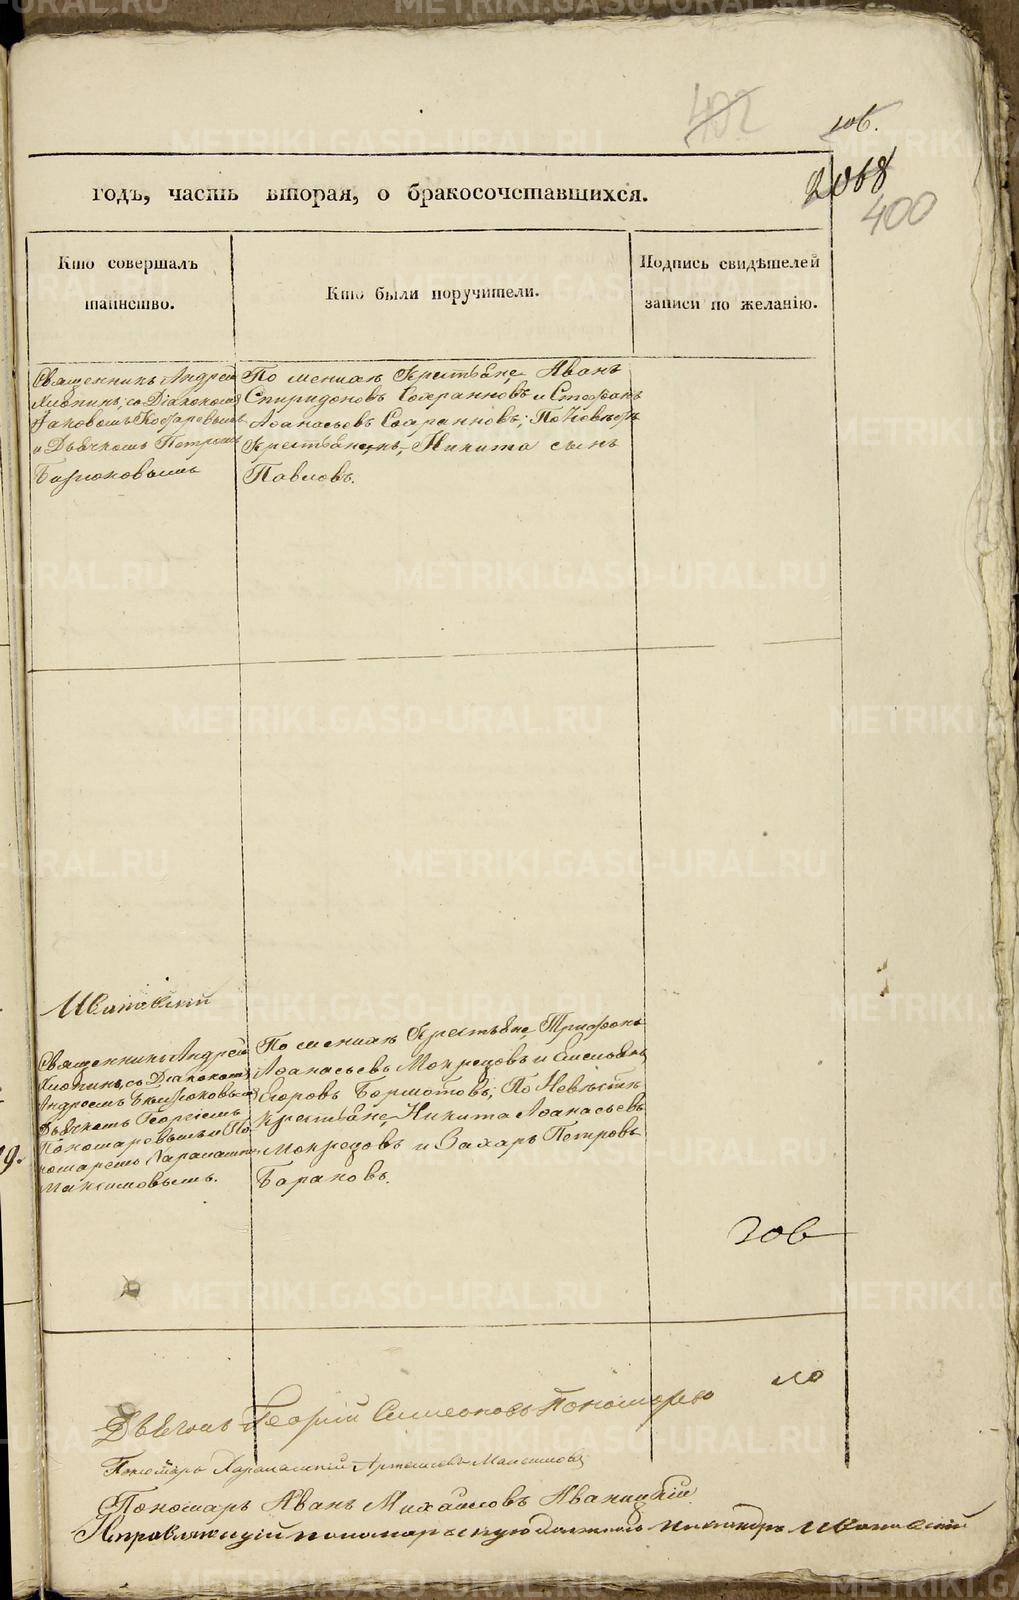 402
2068
400
годъ, часть вторая, о бракосочетавшихся.
Кто совершалъ
таинство.
Кто были поручители.
Подпись свидѣтелей
записи по желанію.
Священникъ Андрей
Хлопинъ, со Діакономъ
Іаковомъ
и Дьячкомъ Петромъ
Бирюковымъ
По женихѣ Крестьяне, Иванъ
Спиридоновъ и Стефанъ
Аѳанасьевъ; По Невѣстѣ
Крестьянинъ, Никита сынъ
Павловъ.
Ивановскій
Священникъ Андрей
Хлопинъ, со Діакономъ
Андреемъ Бирюковымъ
Дьячкомъ Георгіемъ
Пономаревымъ и По
номаремъ
Максимовымъ.
По женихѣ Крестьяне, Трифонъ
Аѳанасьевъ Мокрецовъ и Емельянъ
Егоровъ Бормотовъ; По Невѣстѣ
крестьяне, Никита Аѳанасьевъ
Мокрецовъ и Захаръ Петровъ
Барановъ.
Дьячекъ Георгій Симеоновъ Пономаревъ
Пономарь Харалампій Артемьевъ Максимовъ
Пономарь Иванъ Михайловъ Иваницкій
Исправляющій пономарскую должность Никандръ Ивановскій
METRIKI.GASO-URAL.RU